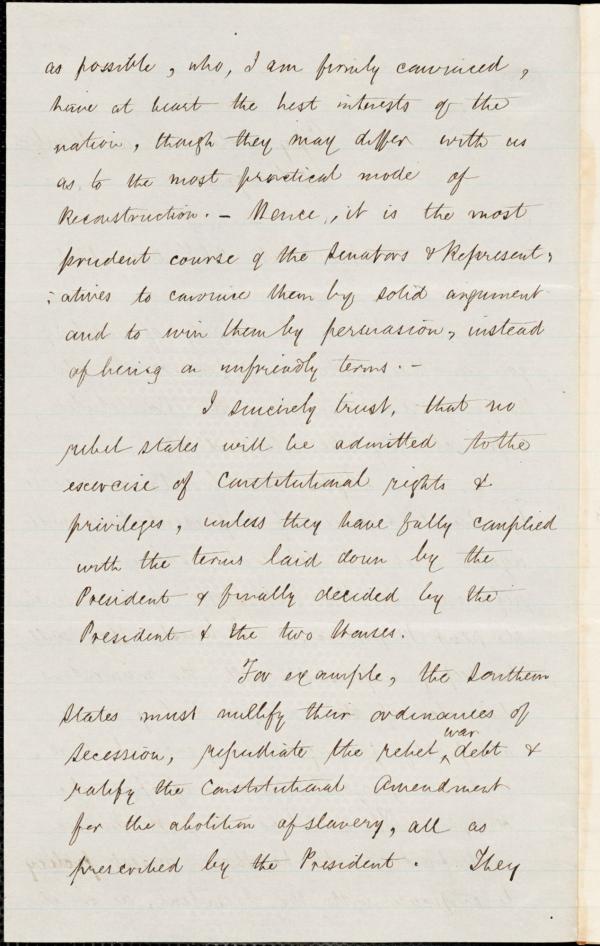 as possible, who, I am firmly convinced,
have at heart the best interests of the
nation, though they may differ with us
as to the most practical mode of
Reconstruction. – Hence, it is the most
prudent course of the Senators & Represent-
-atives to convince them by solid argument
and to win them by persuasion, instead
of being on unfriendly terms. –
I sincerely trust, that no
rebel states will be admitted to the
excercise of Constitutional rights &
privileges, unless they have fully complied
with the terms laid down by the
President & finally decided by the
President & the two Houses.
For example, the Southern
States must nullify their ordinances of
secession, repudiate the rebel war debt &
ratify the Constitutional Amendment
for the abolition of slavery, all as
prescribed by the President. They